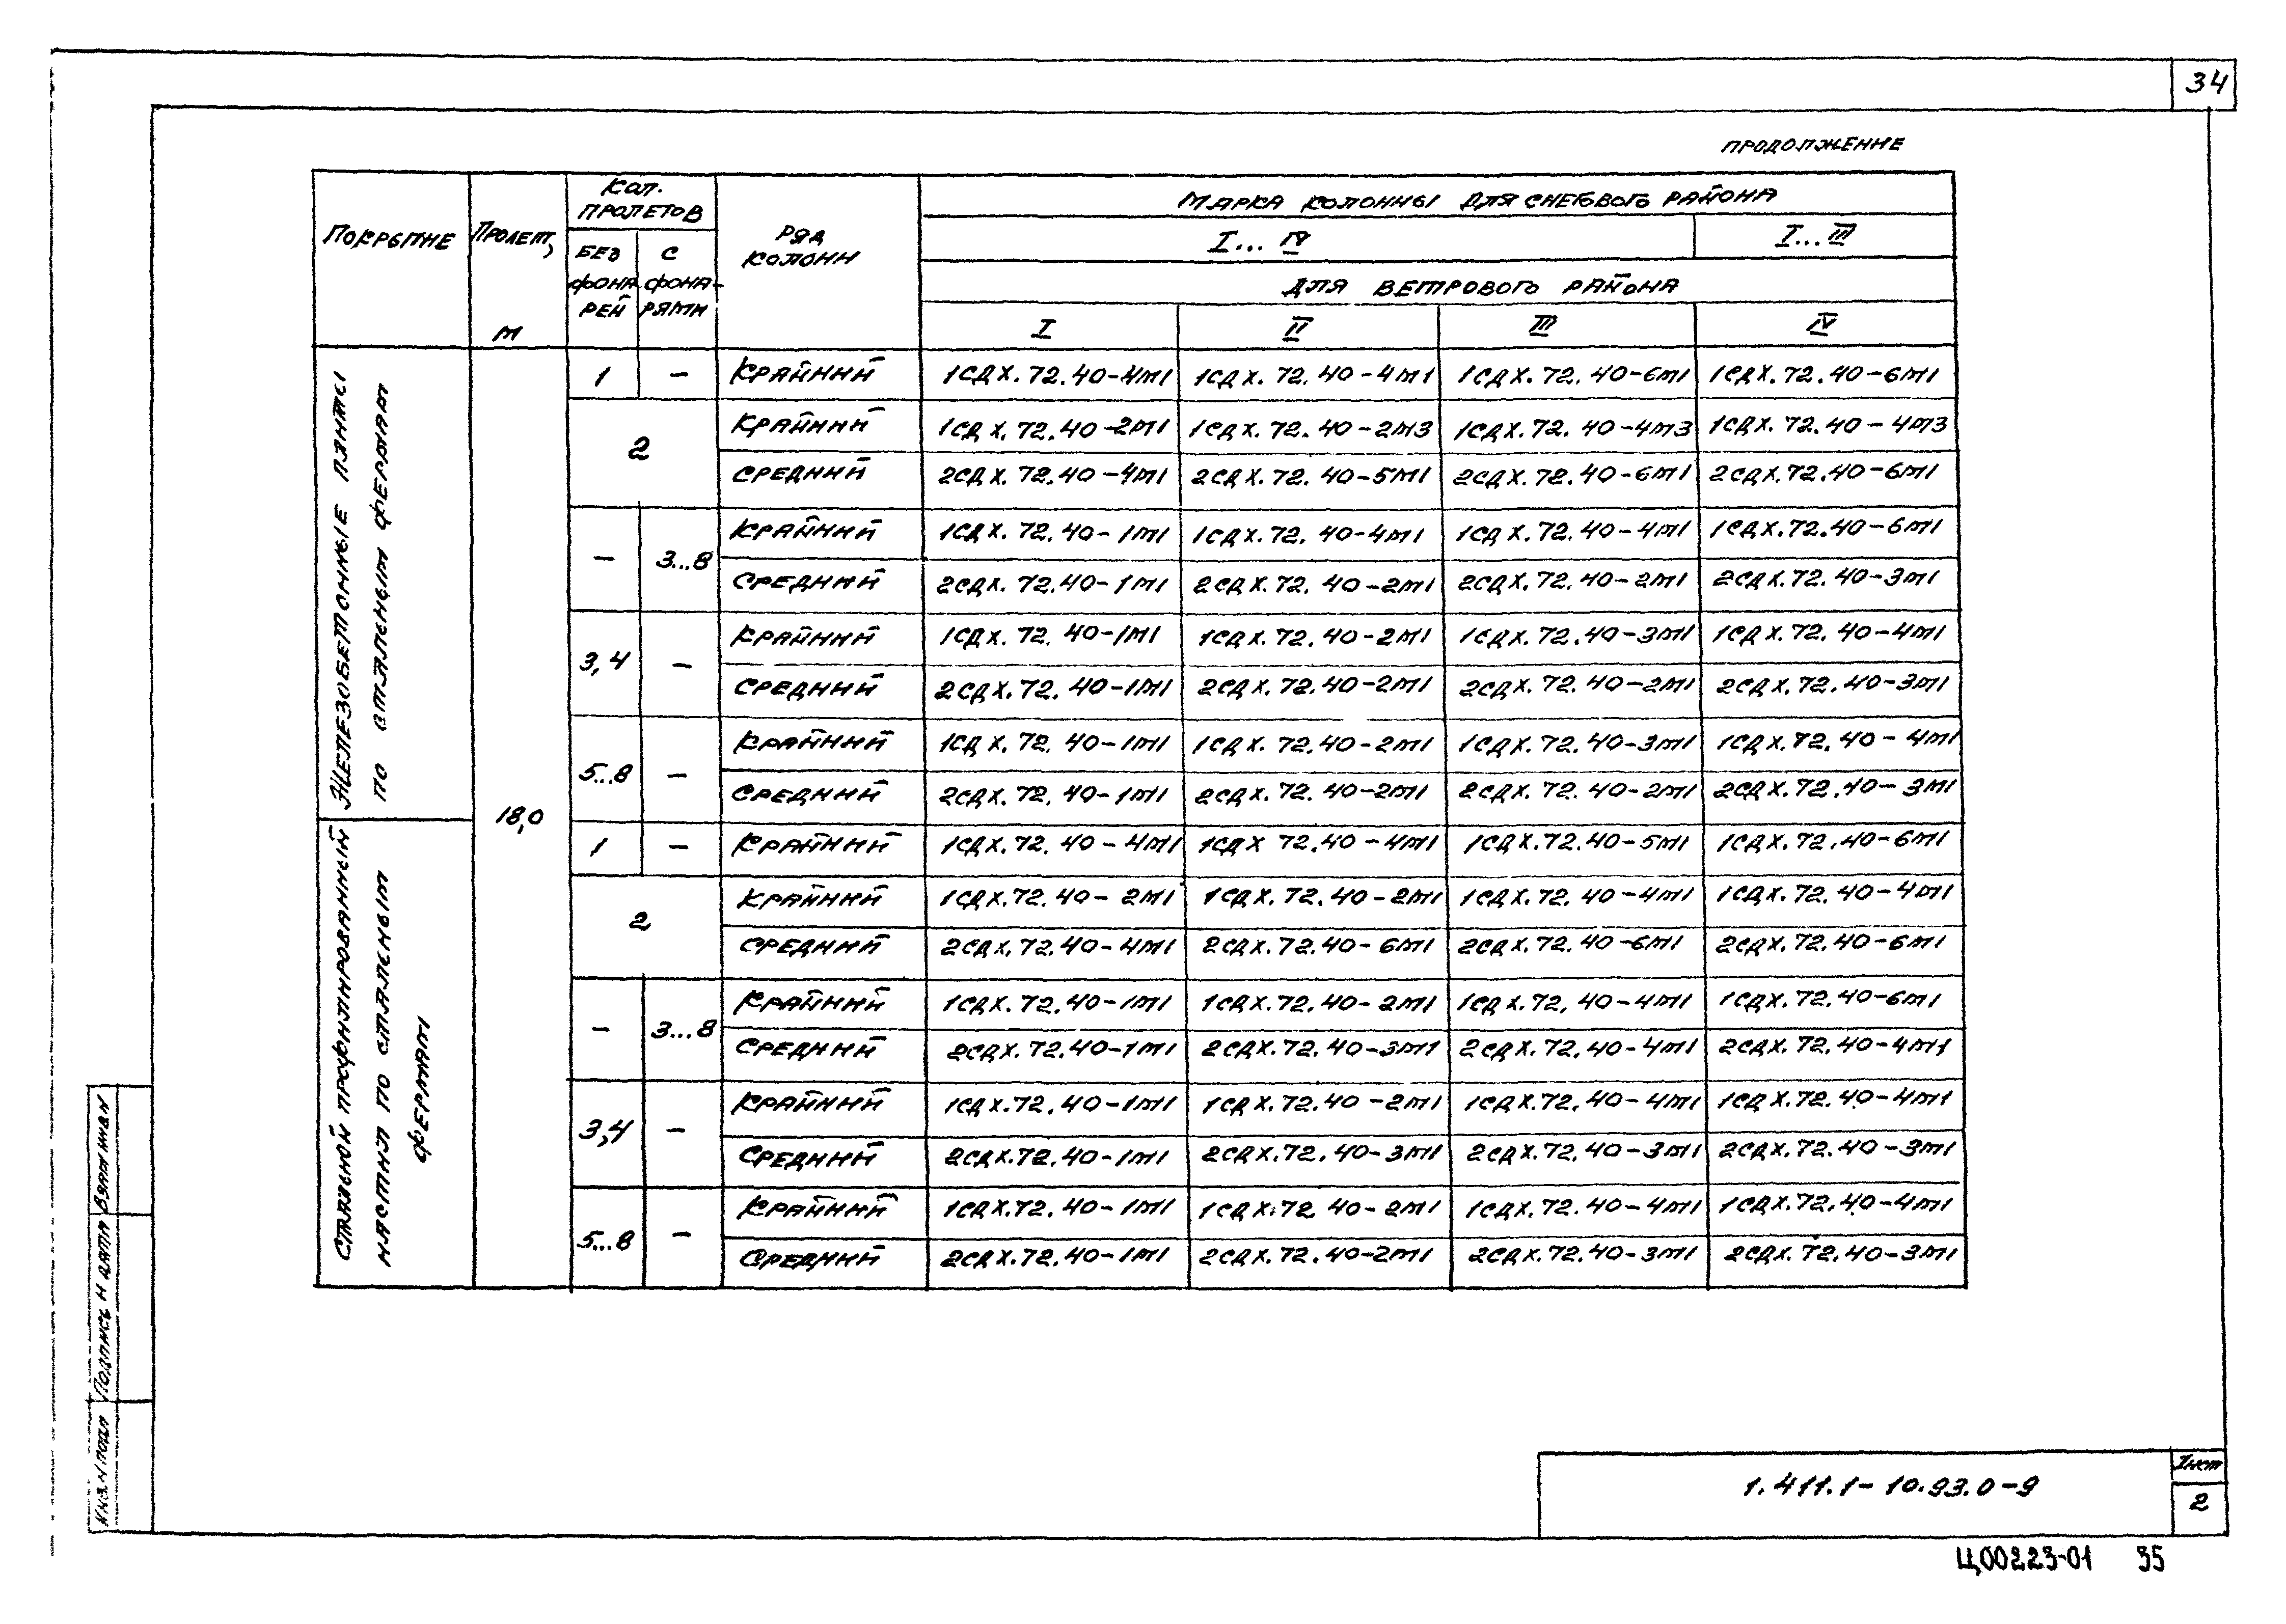 34
ПРОДОЛЖЕНИЕ
ПОКРЫТИЕ
ПРОЛЕТ, м
КОЛ. ПРОЛЕТОВ
БЕЗ ФОНАРЕЙ
С ФОНАРЯМИ
РЯД КОЛОНН
МАРКА КОЛОННЫ ДЛЯ СНЕГОВОГО РАЙОНА
I... IV
I... III
ДЛЯ ВЕТРОВОГО РАЙОНА
I II III IV
ЖЕЛЕЗОБЕТОННЫЕ ПЛИТЫ
ПО СТАЛЬНЫМ ФЕРМАМ
18,0
1 – КРАЙНИЙ 1СДХ.72.40-4М1 1СДХ.72.40-4М1 1СДХ.72.40-6М1 1СДХ.72.40-6М1
2 КРАЙНИЙ 1СДХ.72.40-2М1 1СДХ.72.40-2М3 1СДХ.72.40-4М3 1СДХ.72.40-4М3
СРЕДНИЙ 2СДХ.72.40-4М1 2СДХ.72.40-5М1 2СДХ.72.40-6М1 2СДХ.72.40-6М1
– 3...8 КРАЙНИЙ 1СДХ.72.40-1М1 1СДХ.72.40-4М1 1СДХ.72.40-4М1 1СДХ.72.40-6М1
СРЕДНИЙ 2СДХ.72.40-1М1 2СДХ.72.40-2М1 2СДХ.72.40-2М1 2СДХ.72.40-3М1
3,4 – КРАЙНИЙ 1СДХ.72.40-1М1 1СДХ.72.40-2М1 1СДХ.72.40-3М1 1СДХ.72.40-4М1
СРЕДНИЙ 2СДХ.72.40-1М1 2СДХ.72.40-2М1 2СДХ.72.40-2М1 2СДХ.72.40-3М1
5...8 – КРАЙНИЙ 1СДХ.72.40-1М1 1СДХ.72.40-2М1 1СДХ.72.40-3М1 1СДХ.72.40-4М1
СРЕДНИЙ 2СДХ.72.40-1М1 2СДХ.72.40-2М1 2СДХ.72.40-2М1 2СДХ.72.40-3М1
СТАЛЬНОЙ ПРОФИЛИРОВАННЫЙ
НАСТИЛ ПО СТАЛЬНЫМ
ФЕРМАМ
1 – КРАЙНИЙ 1СДХ.72.40-4М1 1СДХ 72.40-4М1 1СДХ.72.40-5М1 1СДХ.72.40-6М1
2 КРАЙНИЙ 1СДХ.72.40-2М1 1СДХ.72.40-2М1 1СДХ.72.40-4М1 1СДХ.72.40-4М1
СРЕДНИЙ 2СДХ.72.40-4М1 2СДХ.72.40-6М1 2СДХ.72.40-6М1 2СДХ.72.40-6М1
– 3...8 КРАЙНИЙ 1СДХ.72.40-1М1 1СДХ.72.40-2М1 1СДХ.72.40-4М1 1СДХ.72.40-6М1
СРЕДНИЙ 2СДХ.72.40-1М1 2СДХ.72.40-3М1 2СДХ.72.40-4М1 2СДХ.72.40-4М1
3,4 – КРАЙНИЙ 1СДХ.72.40-1М1 1СДХ.72.40-2М1 1СДХ.72.40-4М1 1СДХ.72.40-4М1
СРЕДНИЙ 2СДХ.72.40-1М1 2СДХ.72.40-3М1 2СДХ.72.40-3М1 2СДХ.72.40-3М1
5...8 – КРАЙНИЙ 1СДХ.72.40-1М1 1СДХ.72.40-2М1 1СДХ.72.40-4М1 1СДХ.72.40-4М1
СРЕДНИЙ 2СДХ.72.40-1М1 2СДХ.72.40-2М1 2СДХ.72.40-3М1 2СДХ.72.40-3М1
ВЗАМ ИНВ N
ПОДПИСЬ И ДАТА
ИНВ. N ПОДЛ
1.411.1-10.93.0-9
Лист
2
Ц00223-01 35